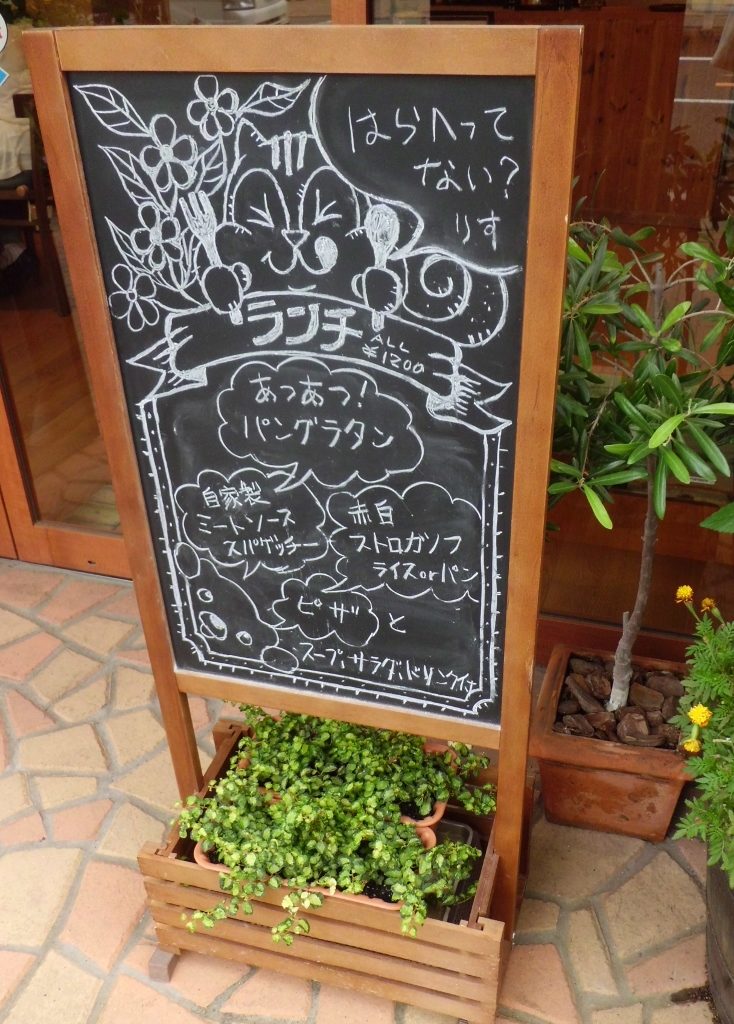 はらへって
ない?
りす
ランチ
ALL
¥1200
あつあつ!
パングラタン
自家製
ミートソース
スパゲッチー
赤白
ストロガノフ
ライスorパン
ピザ
と
スープ、サラダ、ドリンク付